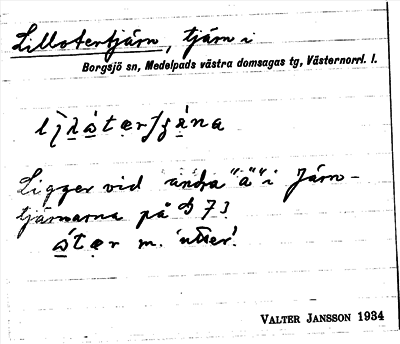 Lillotertjärn, tjärn i
Borgsjö sn, Medelpads västra domsagas tg, Västernorrl. l.
Ligger vid andra "ä" i Järn-
tjärnarna på D 73
åtær m. 'utter'.
VALTER JANSSON 1934